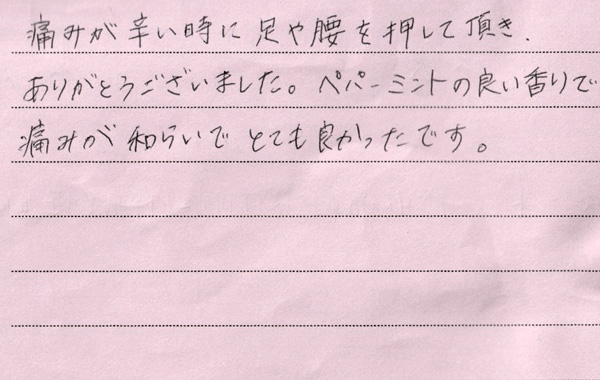 痛みが辛い時に足や腰を押して頂き、
ありがとうございました。ペパーミントの良い香りで
痛みが和らいでとても良かったです。